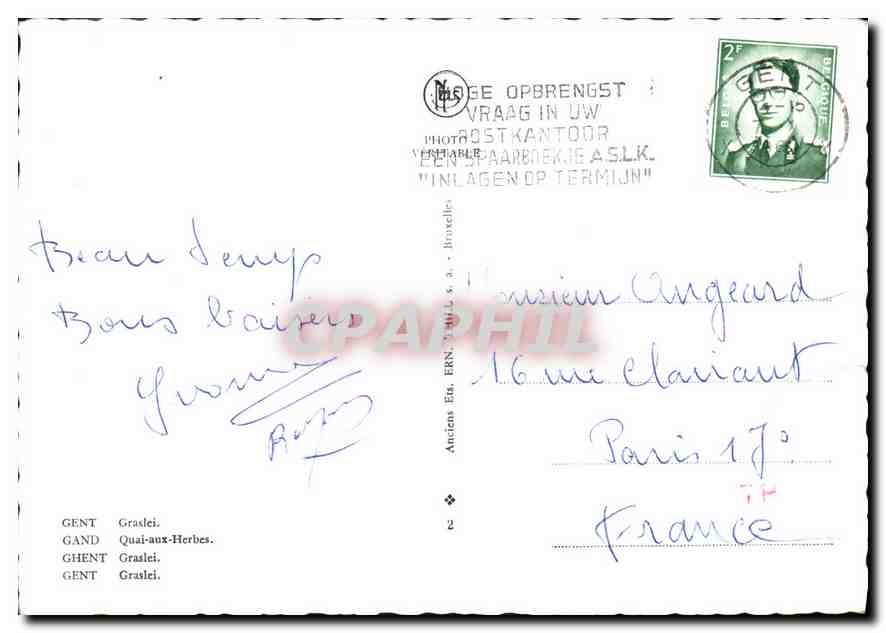 HOGE OPBRENGST
VRAAG IN UW
POSTKANTOOR
EEN SPAARBOEKJE A.S.L.K.
"INLAGEN OP TERMIJN"
PHOTO
VERITABLE
2F
BELGIQUE
GENT
Beau temps
Bons baisers
Yvonne
Monsieur Angeard
16 rue Clairaut
Paris 17°
France
TH
CPAPHIL
Anciens Ets. ERN. THILL s. a. - Bruxelles
2
GENT Graslei.
GAND Quai-aux-Herbes.
GHENT Graslei.
GENT Graslei.